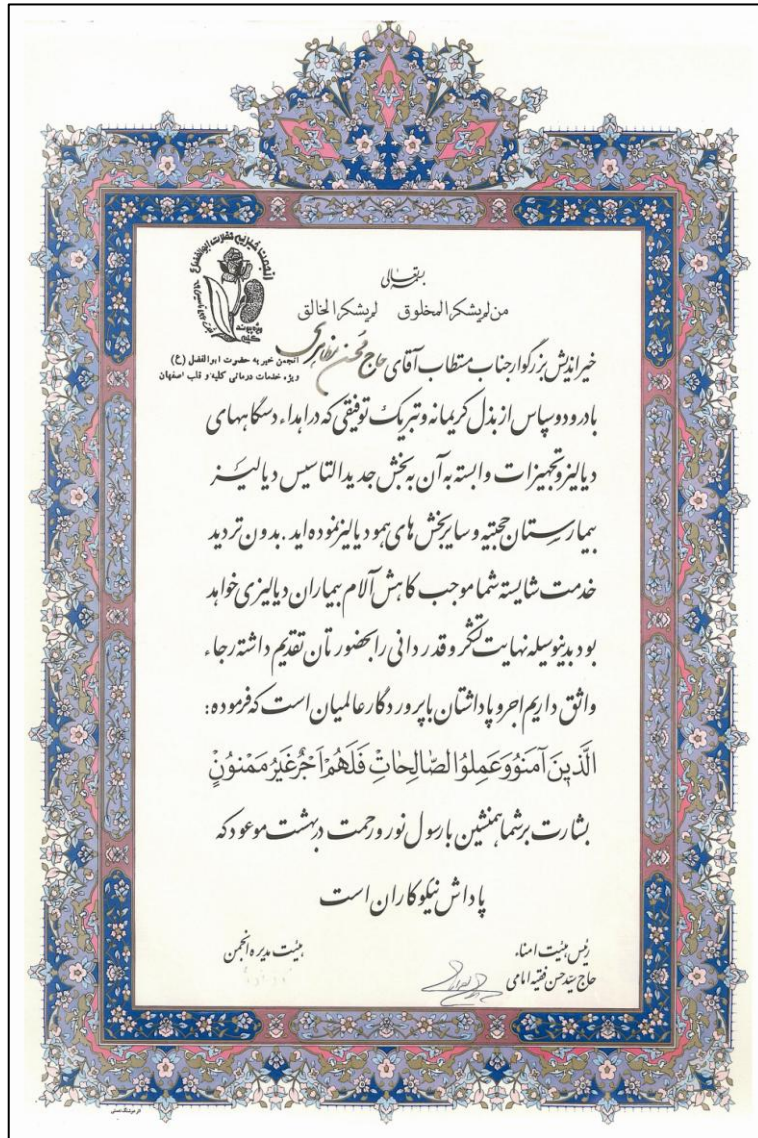 بسمه تعالی
من لم یشکر المخلوق لم یشکر الخالق
انجمن خیریه حضرت ابوالفضل (ع)
ویژه خدمات درمانی کلیه و قلب اصفهان
خیراندیش بزرگوار جناب مستطاب آقای حاج محسن نظاری
با درود و سپاس از بذل کریمانه و تبریک توفیقی که در اهداء دستگاههای
دیالیز و تجهیزات وابسته به آن به بخش جدید التاسیس دیالیز
بیمارستان حجتیه و سایر بخش های همودیالیز نموده اید . بدون تردید
خدمت شایسته شما موجب کاهش آلام بیماران دیالیزی خواهد
بود بدینوسیله نهایت تشکر و قدردانی را بحضورتان تقدیم داشته رجاء
واثق داریم اجر و پاداشتان با پروردگار عالمیان است که فرموده :
الَّذینَ آمَنُوُ وَعَمِلوُا الصّالِحاتِ فَلَهُم اَجْرٌ غَیْرُ مَمْنوُنٍ
بشارت بر شما همنشین با رسول نور و رحمت در بهشت موعود که
پاداش نیکوکاران است
رئیس هیئت امناء
حاج سید حسن فقیه امامی
هیئت مدیره انجمن